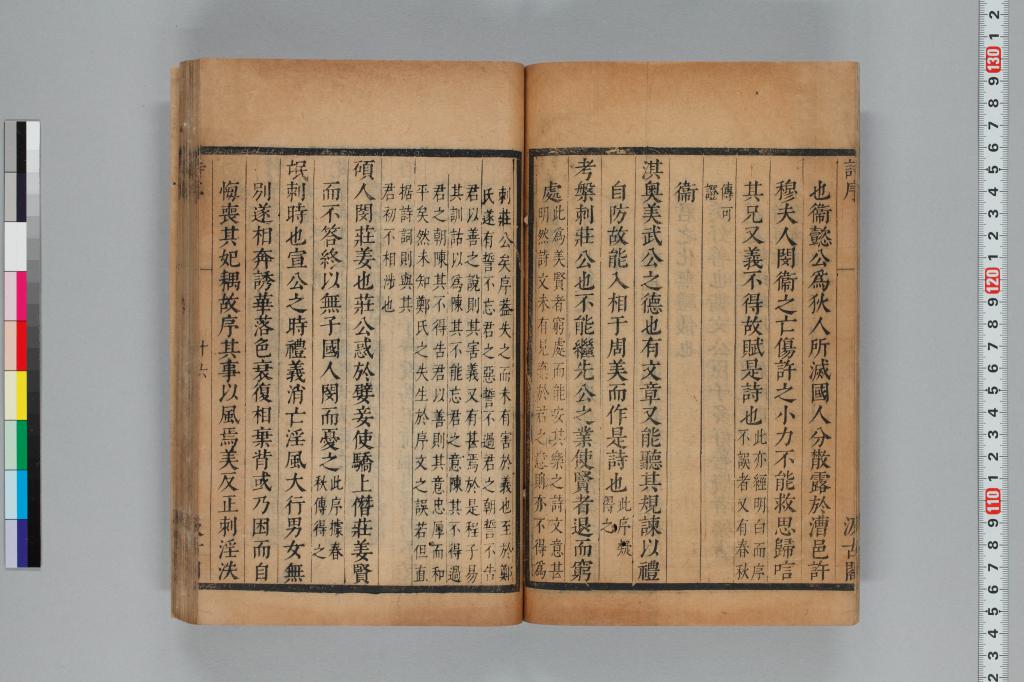 詩序
汲古閣
也衞懿公爲狄人所滅國人分散露於漕邑許
穆夫人閔衞之亡傷許之小力不能救思歸唁
其兄又義不得故賦是詩也此亦經明白而序
不誤者又有春秋
傳可
證
衞
淇奥美武公之德也有文章又能聽其規諫以禮
自防故能入相于周美而作是詩也此序疑
得之
考槃刺莊公也不能繼先公之業使賢者退而窮
處此爲美賢者窮處而能安其樂之詩文意甚
明然詩文未有見棄於君之意則亦不得爲
刺莊公矣序蓋失之而未有害於義也至於鄭
氏遂有誓不忘君之惡誓不過君之朝誓不告
君以善之說則其害義又有甚焉於是程子易
其訓詁以爲陳其不能忘君之意陳其不得過
君之朝陳其不得告君以善則其意忠厚而和
平矣然未知鄭氏之失生於序文之誤若但直
据詩詞則與其
君初不相涉也
碩人閔莊姜也莊公惑於嬖妾使驕上僭莊姜賢
而不答終以無子國人閔而憂之此序據春
秋傳得之
氓刺時也宣公之時禮義消亡淫風大行男女無
別遂相奔誘華落色衰復相棄背或乃困而自
悔喪其妃耦故序其事以風焉美反正刺淫泆
十六